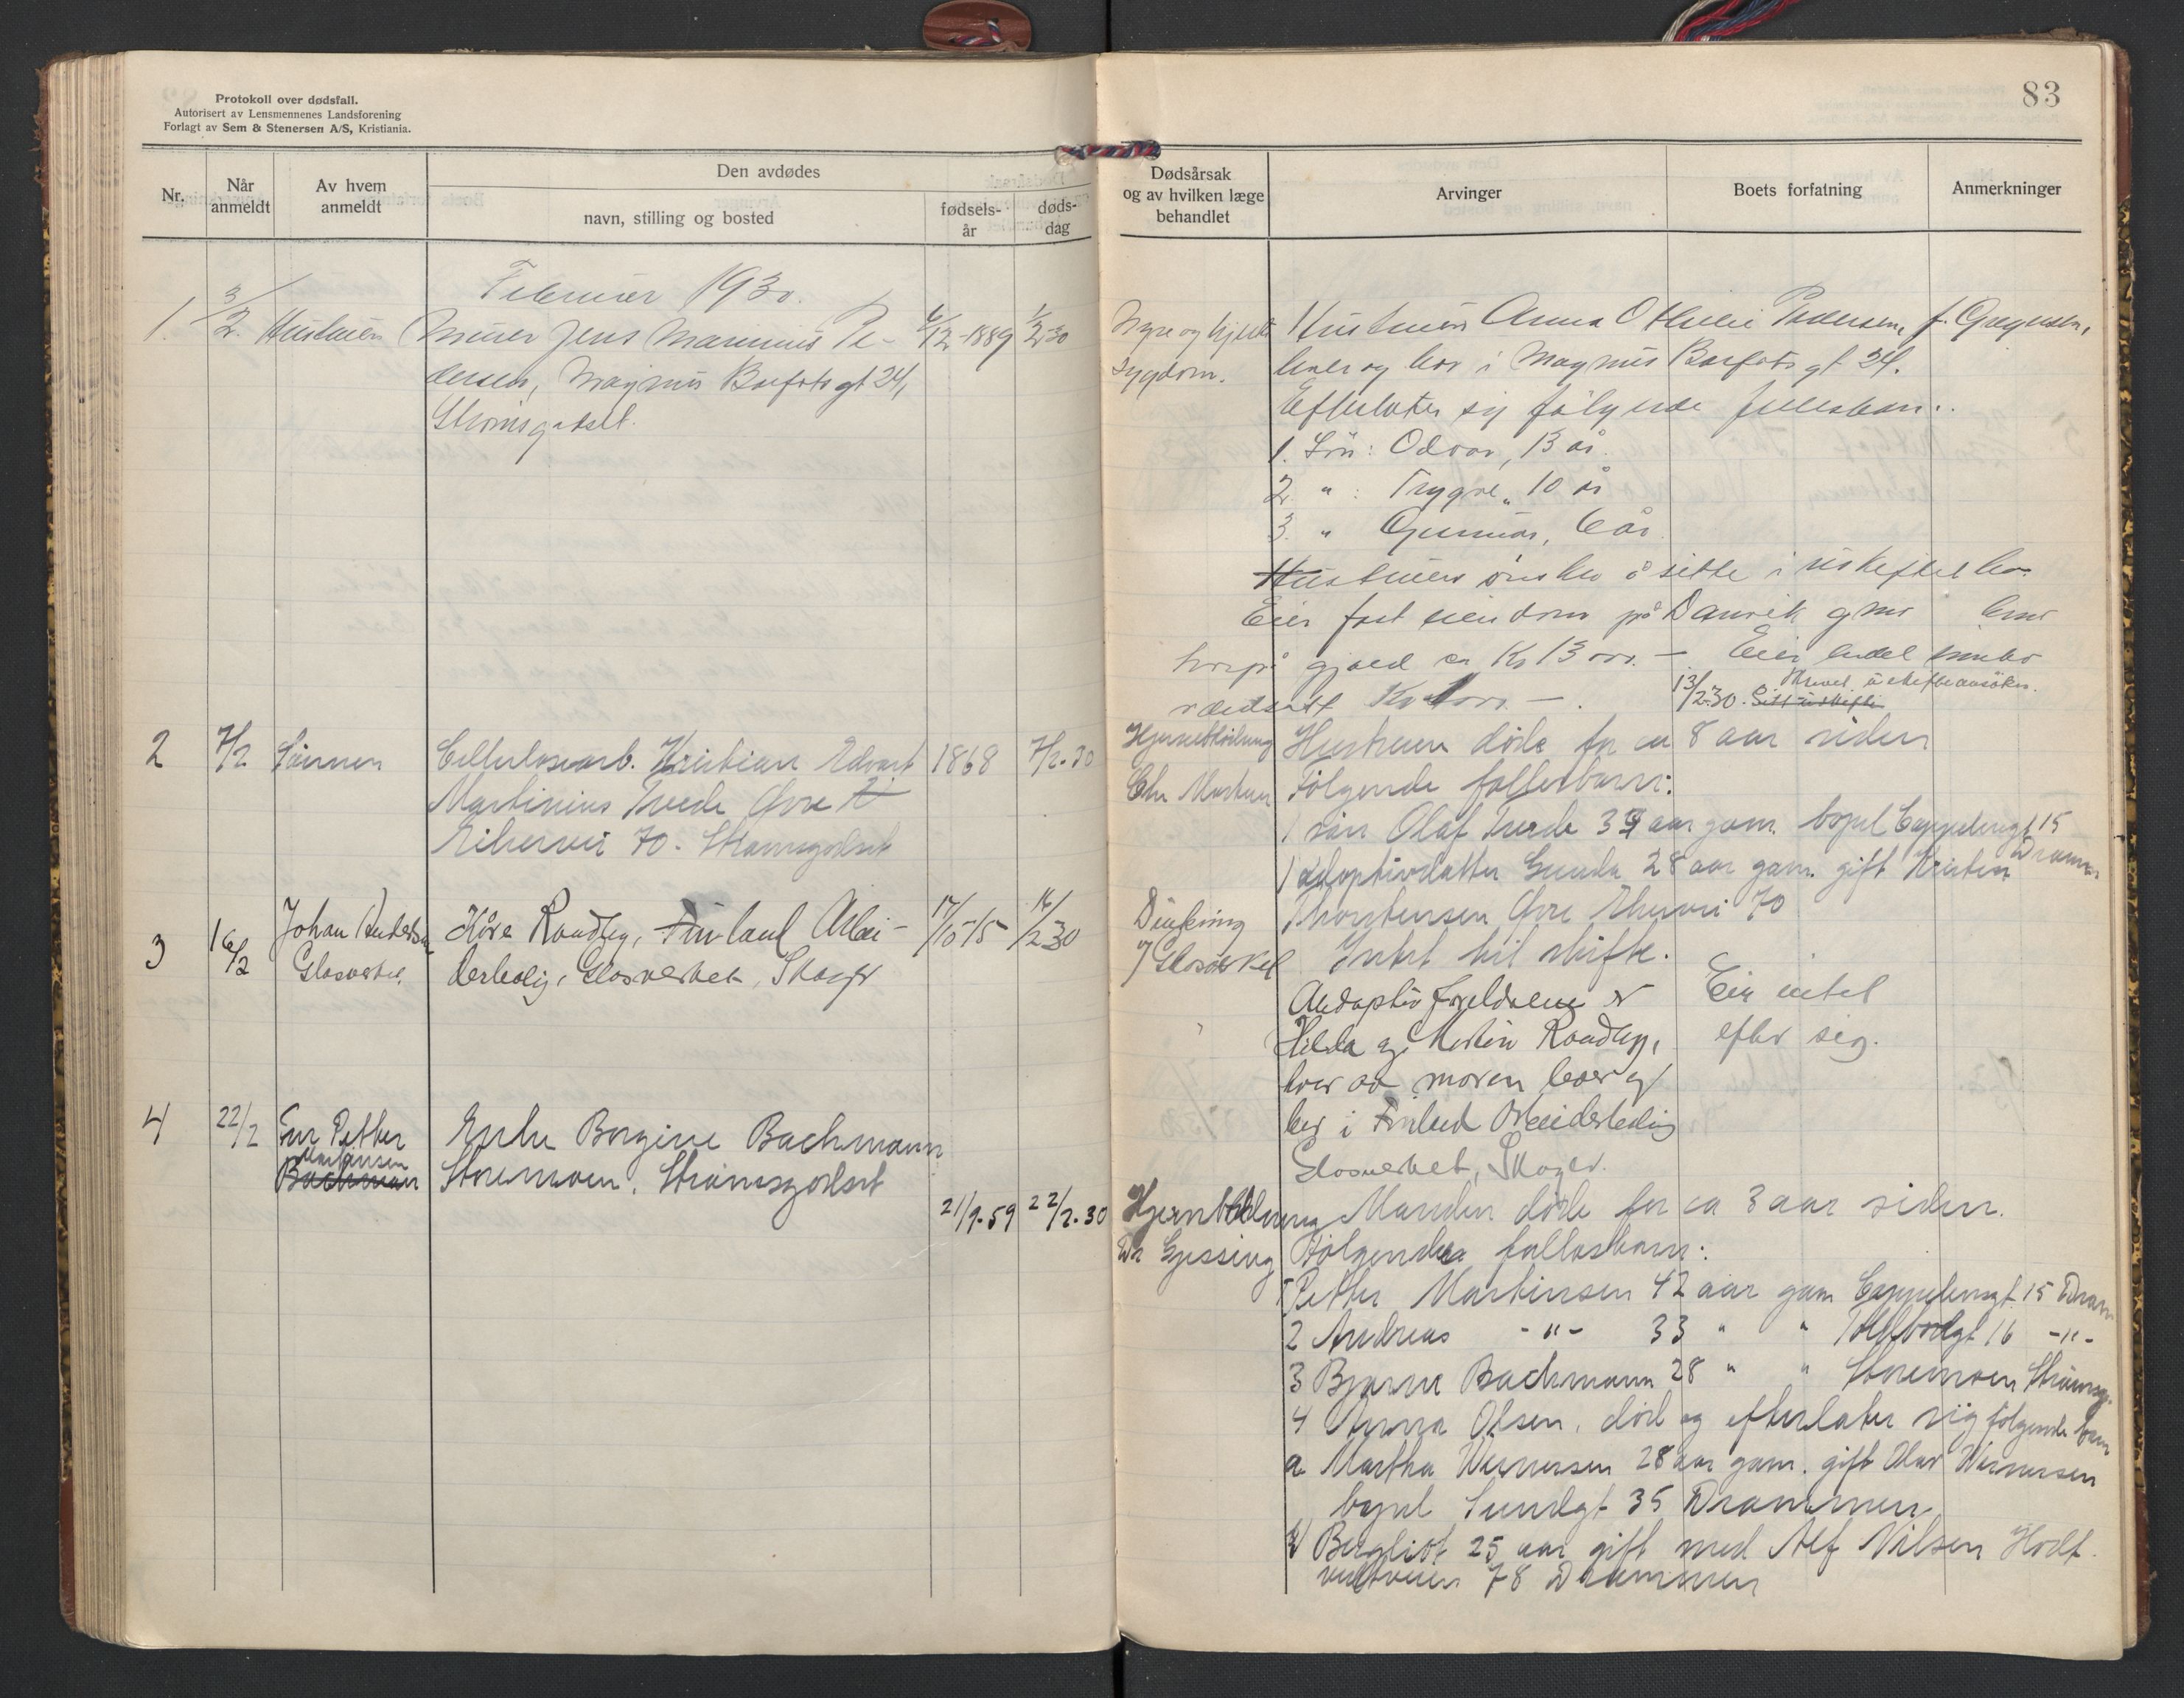 Protokoll over dødsfall.
Autorisert av Lensmennenes Landsforening
Forlagt av Sem & Stenersen A/S, Kristiania.
Nr.
Når anmeldt
Av hvem anmeldt
Den avdødes
navn, stilling og bosted
fødsels-år
døds-dag
Februar 1930.
1. 3/2. Hustruen Murer Jens Marinius Pe- 6/12-1889 1/2-30
dersen, Magnus Barfots gt 24,
Strømsgodset.
2 7/2 Sønnen Cellulosearb. Kristian Edvart 1868 7/2.30
Martinius Tvede Øvre
Eikervei 70. Strømsgodset
3 16/2 Johan Anderson Kåre Raadløp, Finland Arbei- 17/10-15 16/2-30
Glasverket. derbolig, Glasverket, Skoger
4 22/2 Fru Petter Erthe Borgine Bachmann
Martinsen
Bachman Storemoen, Strømsgodset
21/9.59 22/2.30
83
Dødsårsak
og av hvilken læge
behandlet
Arvinger
Boets forfatning
Anmerkninger
Nyre og hjerte Hustruen Anna Othilie Pedersen, f. Gregersen,
sygdom. lever og bor i Magnus Barfots gt 24.
Efterlater sig følgende fellesbarn:
1. Søn: Odvar, 13 år.
2. " : Trygve, 10 år
3. " Gunnar, 6 år.
Hustruen ønsker å sitte i uskiftet bo.
Eier fast eiendom på Danvik gnr bnr
hvorpå gjeld ca Kr 13000.- Eier endel innbo
verdsatt Kr 1000.-.
13/2.30. Krevet uskifteansøkn.
Sitt i uskifte
Hjerneblødning Hustruen døde for ca 8 aar siden
Følgende fellesbarn:
1 søn Olaf Tvede 39 aar gam. bopel Cappelensgt 15
Dramm
1 adoptivdatter Gunda 28 aar gam. gift Kristen
Thorstensen Øvre Eikervei 70
Intet til skifte.
Drukning
v/ Glasverket
Andoptivforeldrene er Eier intet
Hilda og Martin Raadløp, efter sig.
hvor av moren lever og
bor i Finland Arbeiderbolig
Glasverket, Skoger.
Hjerneblødning Manden døde for ca 3 aar siden.
Dr Gjessing Følgende fellesbarn:
1 Petter Martinsen 42 aar gam Cappelensgt. 15 Dram
2 Andreas -"- 33 " " Tollbodgt 16 -"-
3 Bjarne Bachmann 28 " " Storemoen Strømsg.
4 Anna Olsen, død og efterlater sig følgende barn
a Martha Wernersen 28 aar gam. gift Olav Wernersen
bopel Sundgt 35 Drammen
b Bergliot 25 aar gift med Alf Nilsen Hodt-
vedtveien 78 Drammen